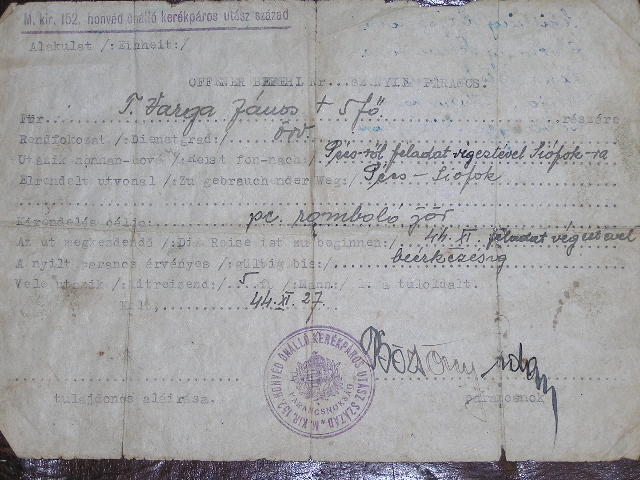 M. kir. 152. honvéd önálló kerékpáros utász század
Alakulat /:Einheit:/
OFFENER BEFEHL Nr... SZ. NYILT PARANCS.
Für T. Varga János + 5 fő részére
Rendfokozat /:Dienstgrad:/ örv.
Utazik honnan-hová /:Reist von-nach:/ Pécs-ről feladat végeztével Siófok-ra
Elrendelt utvonal /:Zu gebrauchender Weg:/ Pécs - Siófok
Kirendelés célja: pc. romboló
Az ut megkezdendő /:Die Reise ist zu beginnen:/ 44. XI. feladat végeztével
A nyilt parancs érvényes /:gültig bis:/ beérkezésig
Vele utazik /:Mitreisend:/ 5 fő /:Mann:/ l. a tuloldalt.
Kelt, 44. XI. 27.
M. KIR. 152. HONVÉD ÖNÁLLÓ KERÉKPÁROS UTÁSZ SZÁZAD
PARANCSNOKSÁG
tulajdonos aláirása.
parancsnok